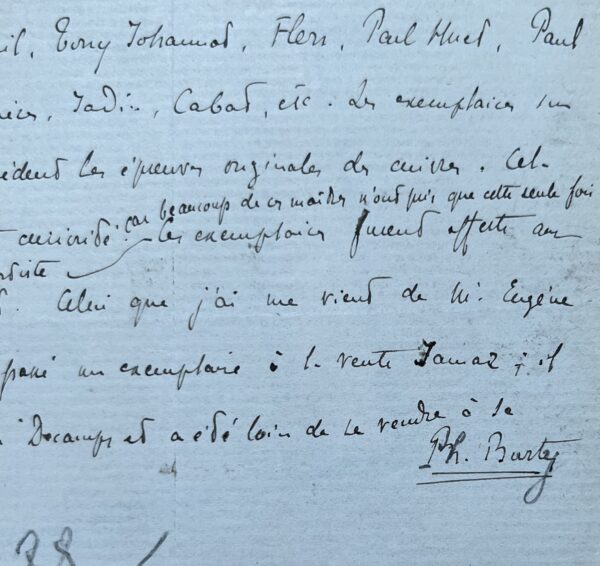 il, Tony Johannot, Flers, Paul Huet, Paul
Jadin, Cabat, etc. Les exemplaires sur
èdent les épreuves originales des cuivres. Cet
car beaucoup de ces maîtres n'ont pris que cette seule fois
t curiosité. Les exemplaires furent offerts aux
Celui que j'ai me vient de M. Eugène
passé un exemplaire à la vente ; il
Decamps et a été loin de se vendre à sa
Ph. Burty
38